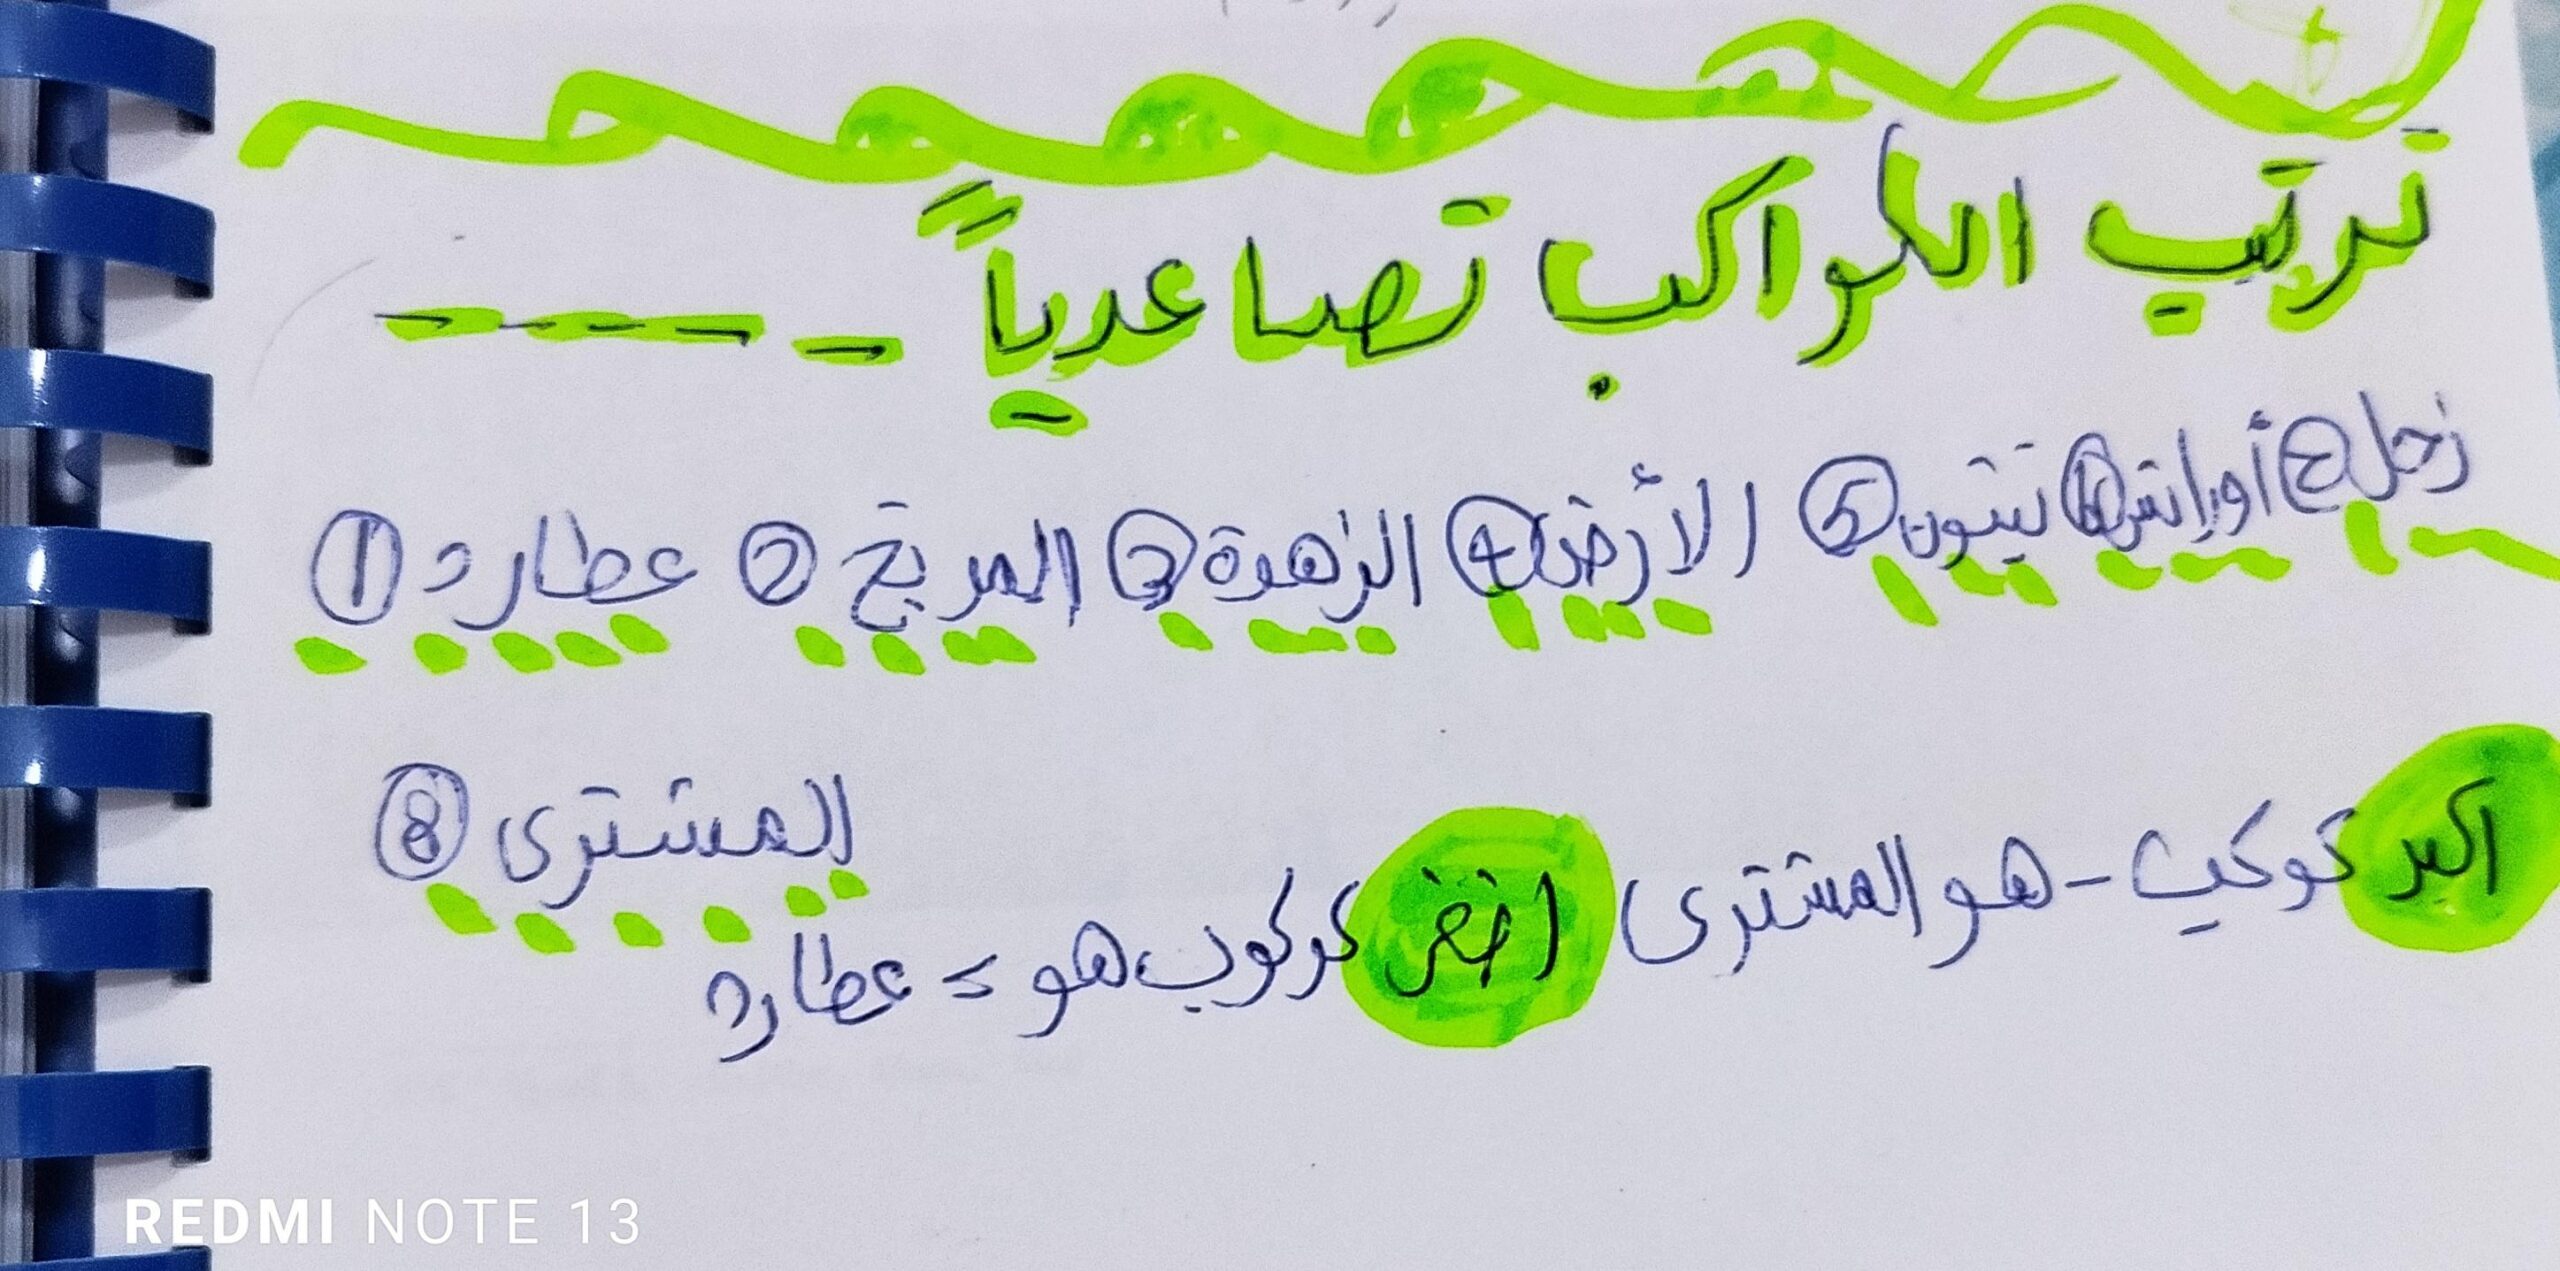 ترتيب الكواكب تصاعدياً -----
① عطارد ② المريخ ③ الزهرة ④ الأرض ⑤ نبتون ⑥ أورانس ⑦ زحل
⑧ المشترى
اكبر كوكب - هو المشترى
اصغر كوكوب هو = عطارد
REDMI NOTE 13